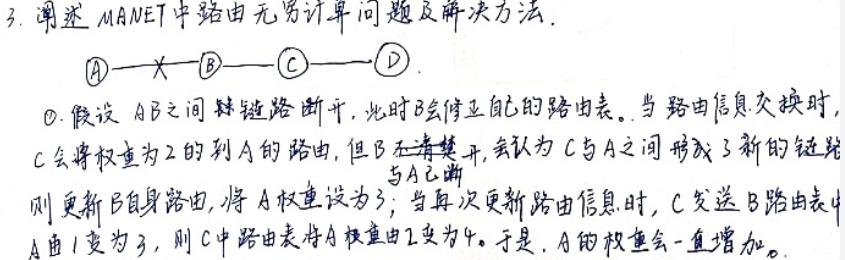 3. 阐述 MANET中路由无穷计算问题及解决方法.
A B C D
①. 假设 AB之间链路断开, 此时B会修正自己的路由表。当路由信息交换时,
C会将权重为2的到A的路由, 但B 开, 会认为C与A之间形成了新的链路
与A已断
则更新B自身路由, 将A权重设为3; 当再次更新路由信息时, C发送B路由表中
A由1变为3, 则C中路由表将A权重由2变为4。于是, A的权重会一直增加。